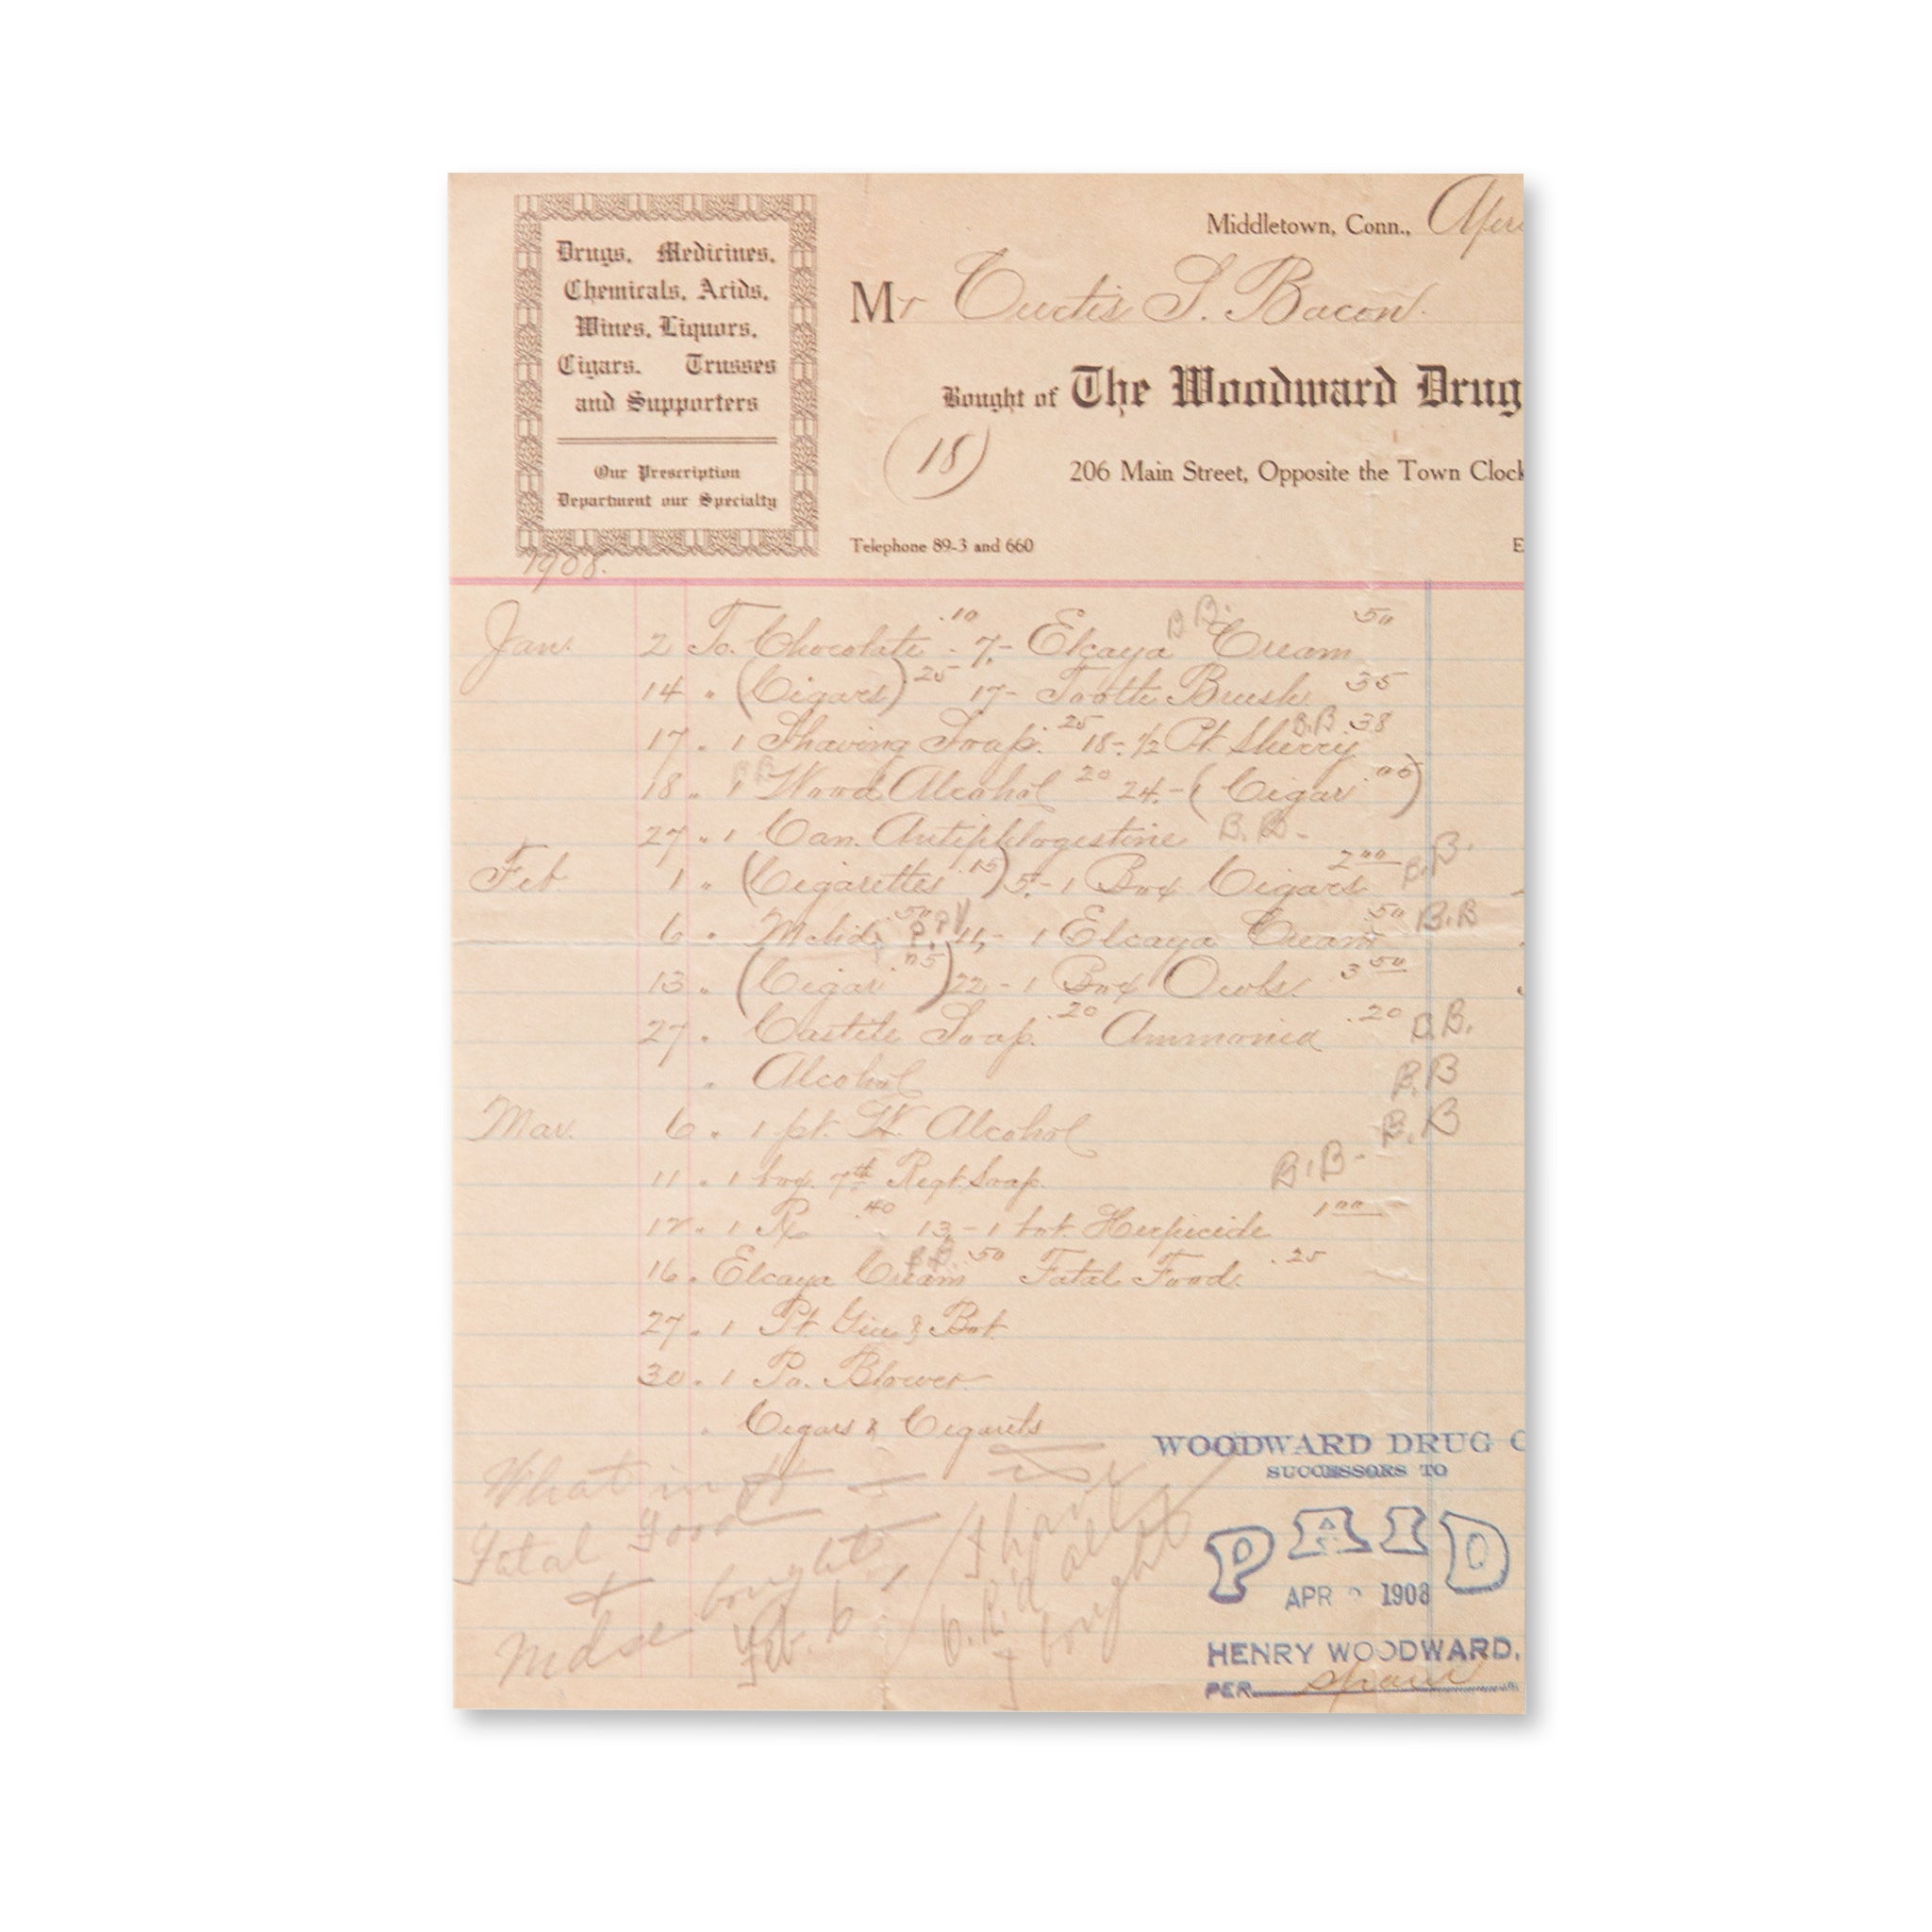 Drugs, Medicines,
Chemicals, Acids,
Wines, Liquors,
Cigars. Trusses
and Supporters
Our Prescription
Department our Specialty
Middletown, Conn.,
Mr Curtis S. Bacon.
Bought of The Woodward Drug
(18)
206 Main Street, Opposite the Town Clock
Telephone 89-3 and 660
E
1908.
Jan. 2 To. Chocolate .10 7,- Elcaya B B. Cream 50
14 " (Cigars) .25 17- Tooth Brush 35
17 " 1 Shaving Soap. .25 18- 1/2 Pt. Sherry B.B .38
18 " 1 Wood Alcohol 20 24.- ( Cigar .05)
27 " 1 Can. Antiphlogestine B.B.
Feb 1 " (Cigarettes .15) 5,- 1 Box Cigars 2 00 B.B.
6 " .50 11,- 1 Elcaya Cream .50 B.B
13 " (Cigar 05) 22 - 1 Box Owls. 3 50
27 " Castile Soap. .20 Ammonia .20 B.B.
" Alcohol B.B
Mar. 6 " 1 pt. W. Alcohol B.B
11 " 1 box. 7th Regt. Soap. B.B-
12 " 1 Rx .40 13,- 1 bot. Herpicide 1 00
16 " Elcaya Cream B.B. 50 Fatal Food. .25
27 " 1 Pt Gin & Bot.
30 " 1 Po. Blower
" Cigars & Cigarets
What is
Fatal Food
+
Mdse bought
Feb. 6
I have
O.K'd all
I bought
WOODWARD DRUG C
SUCCESSORS TO
PAID
APR 1908
HENRY WOODWARD.
PER